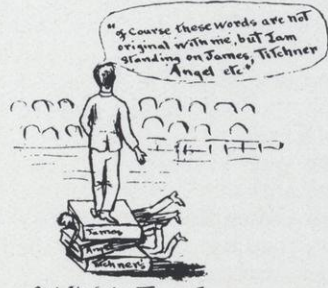 "of Course these words are not
original with me, but I am
standing on James, Titchner
Angel etc"
James
Angel
Titchner's